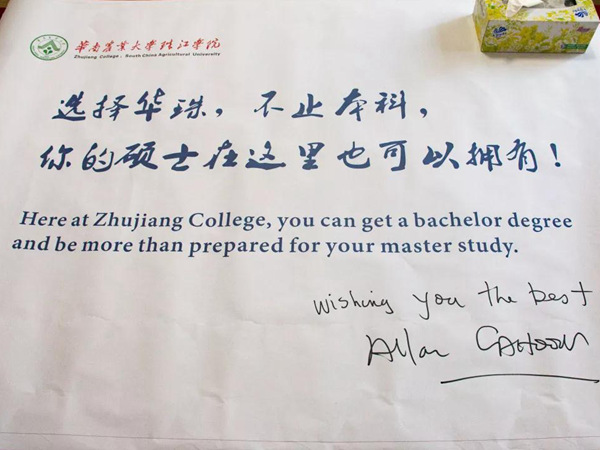 华南农业大学珠江学院
Zhujiang College, South China Agricultural University
选择华珠，不止本科，
你的硕士在这里也可以拥有！
Here at Zhujiang College, you can get a bachelor degree
and be more than prepared for your master study.
Wishing you the best
Allan CAHOON